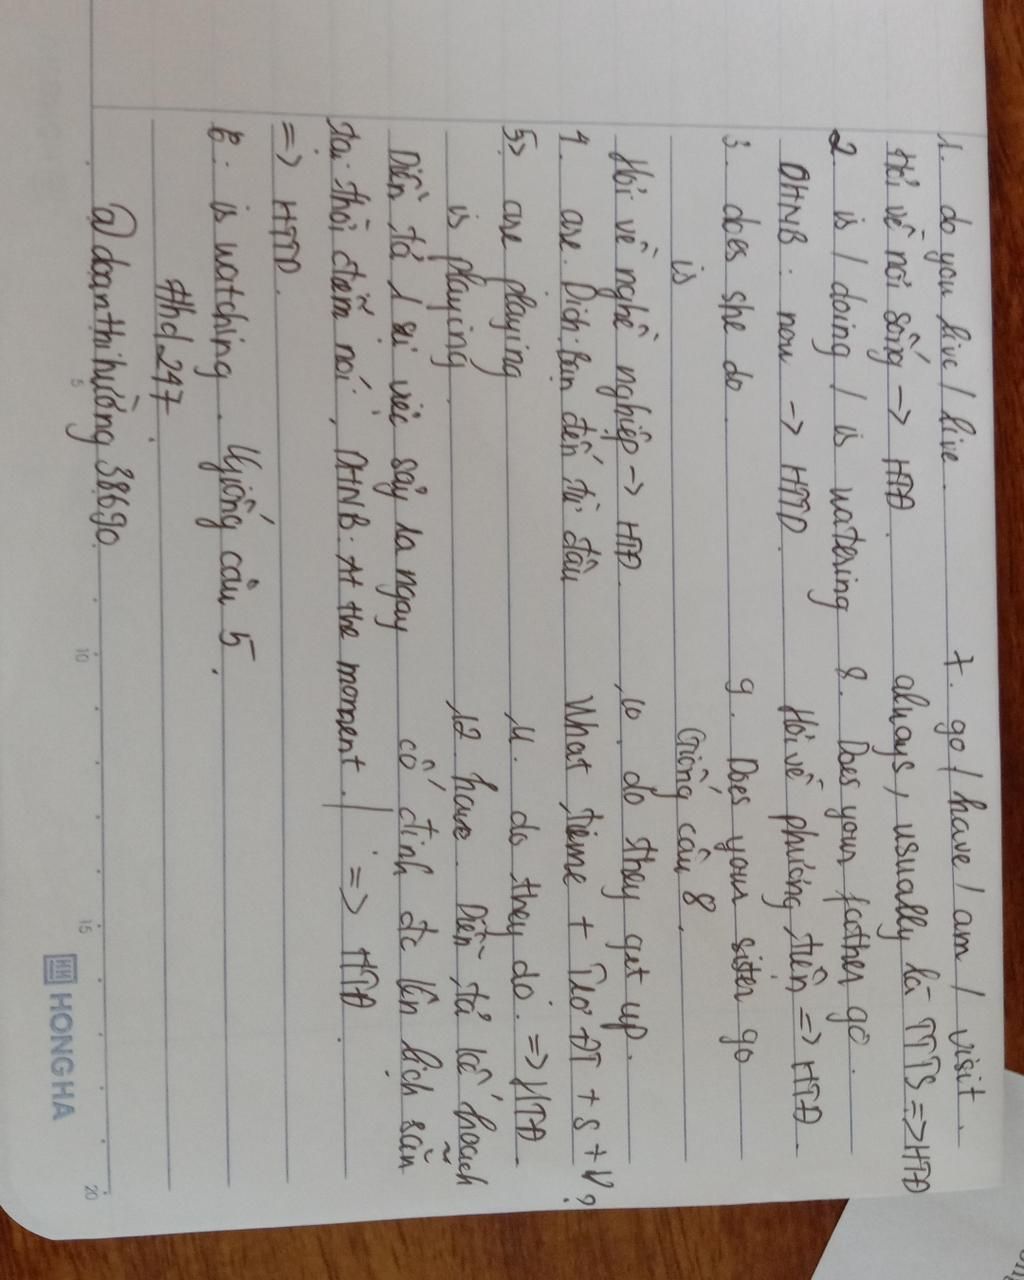 1. do you live / live.
Hỏi về nơi sống -> HTĐ.
2 is / doing / is watering
DHNB: now -> HTTD.
3 does she do.
is
Hỏi về nghề nghiệp -> HTĐ.
4. are. Dịch: Bạn đến từ đâu
5> are playing
is playing.
Diễn tả 1 sự việc sảy ra ngay
tại thời điểm nói, DHNB: At the moment.
=> HTTD.
6. is watching. Giống câu 5.
7. go / have / am / visit.
always, usually là TTTS => HTĐ
8. Does your father go.
Hỏi về phương tiện => HTĐ.
9. Does your sister go
Giống câu 8.
10. do they get up.
What tieme + Trợ ĐT + S + V?
11. do they do. => HTĐ.
12. have. Diễn tả kế hoạch
cố định đc lên lịch sẵn
=> HTĐ.
thd247.
@doanthihường38690.
HONG HA
5 10 15 20